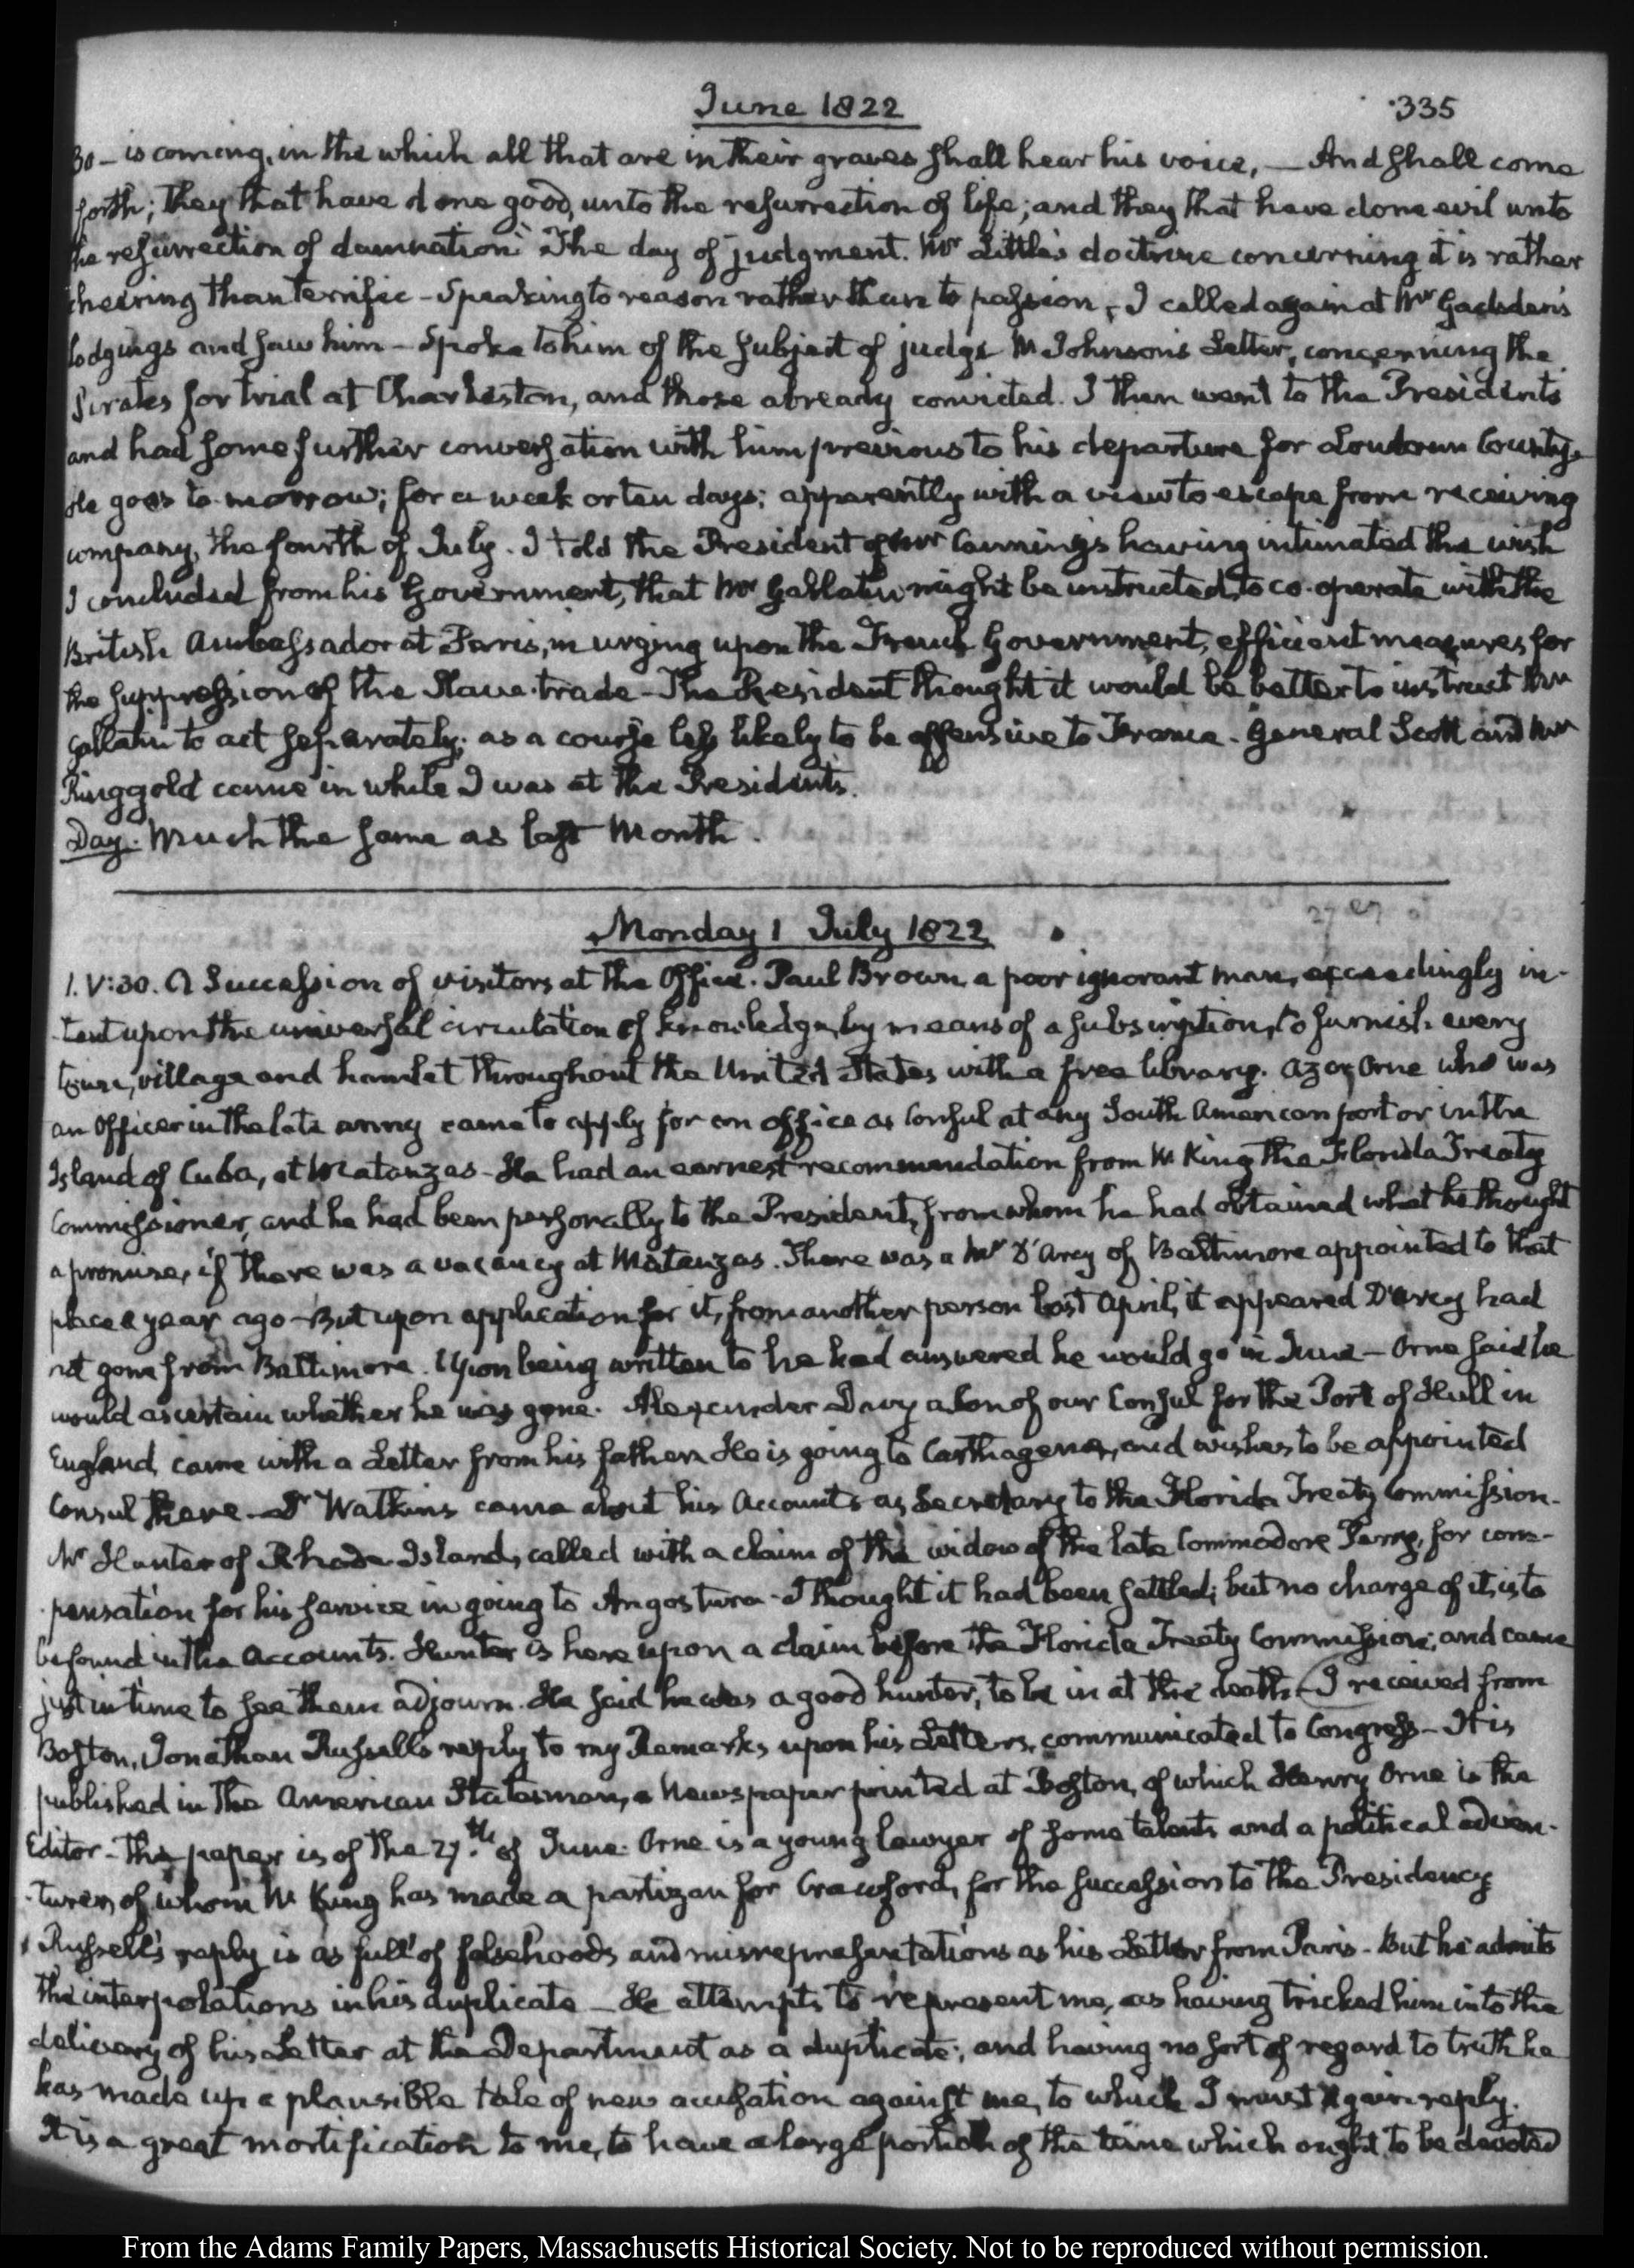 June 1822
335
30 – is coming, in the which all that are in their graves shall hear his voice, — And shall come
forth; they that have done good, unto the resurrection of life; and they that have done evil unto
the resurrection of damnation." The day of judgment. Mr Little's doctrine concerning it is rather
cheering than terrific – Speaking to reason rather than to passion – I called again at Mr Gadsden's
lodgings and saw him – Spoke to him of the subject of judge W Johnson's Letter, concerning the
Pirates for trial at Charleston, and those already convicted. I then went to the President's
and had some further conversation with him previous to his departure for Loudoun County.
He goes to-morrow; for a week or ten days; apparently with a view to escape from receiving
company, the fourth of July. I told the President of Mr Canning's having intimated the wish
I concluded from his Government, that Mr Gallatin might be instructed, to co-operate with the
British Ambassador at Paris, in urging upon the French Government, efficient measures for
the suppression of the Slave-trade – The President thought it would be better to instruct Mr
Gallatin to act separately; as a course less likely to be offensive to France – General Scott and Mr
Ringgold came in while I was at the President's.
Day. Much the same as last Month.
Monday 1 July 1822
1. V:30. A Succession of visitors at the Office. Paul Brown, a poor ignorant man, exceedingly in-
-tent upon the universal circulation of knowledge, by means of a subscription, to furnish every
town, village and hamlet throughout the United States with a free library. Azor Orne who was
an Officer in the late army came to apply for an office as Consul at any South American port or in the
Island of Cuba, at Matanzas – He had an earnest recommendation from W King the Florida Treaty
Commissioner, and he had been personally to the President, from whom he had obtained what he thought
a promise, if there was a vacancy at Matanzas. There was a Mr D'Arcy of Baltimore appointed to that
place a year ago – But upon application for it, from another person last April, it appeared D'Arcy had
not gone from Baltimore. Upon being written to he had answered he would go in June – Orne said he
would ascertain whether he was gone. Alexander Davy a Son of our Consul for the Port of Hull in
England, came with a Letter from his father. He is going to Carthagena, and wishes to be appointed
Consul there – Dr Watkins came about his Accounts as Secretary to the Florida Treaty Commission.
Mr Hunter of Rhode-Island, called with a claim of the widow of the late Commodore Perry, for com-
-pensation for his service in going to Angostura – I thought it had been settled; but no charge of it is to
be found in the Accounts. Hunter is here upon a claim before the Florida Treaty Commission; and came
just in time to see them adjourn. He said he was a good hunter, to be in at the death – I received from
Boston, Jonathan Russell's reply to my Remarks upon his Letters, communicated to Congress – It is
published in the American Statesman, a Newspaper printed at Boston, of which Henry Orne is the
Editor – The paper is of the 27.th of June. Orne is a young lawyer of some talents and a political adven-
-turer, of whom W King has made a partizan for Crawford, for the succession to the Presidency
Russell's reply is as full of falsehoods and misrepresentations as his Letter from Paris – But he admits
the interpolations in his duplicate – He attempts to represent me, as having tricked him into the
delivery of his Letter at the Department as a duplicate; and having no sort of regard to truth he
has made up a plausible tale of new accusation against me, to which I must again reply.
It is a great mortification to me, to have a large portion of the time which ought to be devoted
From the Adams Family Papers, Massachusetts Historical Society. Not to be reproduced without permission.